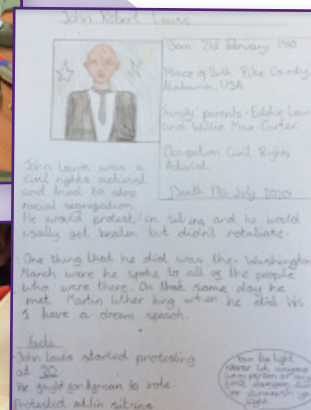 John Robert Lewis
Born: 21st February 1940
Place of Birth: Pike County,
Alabama, USA.
Family: parents - Eddie Lewis
and Willie Mae Carter.
Occupation Civil Rights
Activist.
Death 17th July 2020
John Lewis was a
civil rights activist
and tried to stop
racial segregation.
He would protest in sit ins and he would
usally got beaten but didn't retaliate.
One thing that he did was the Washington
March were he spoke to all of the people
who were there. On that same day he
met Martin luther king when he did his
I have a dream speach.
facts
John Lewis started protesting
at 20
He fought for to vote.
Protested at/in sit ins.
You are light
never let anyone
any person or any
force dampen, dim
or diminish your
light.